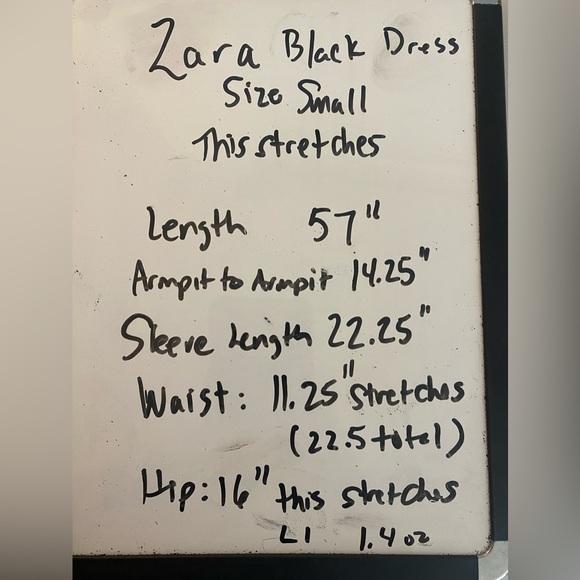 Zara Black Dress
Size Small
This stretches
Length 57"
Armpit to Armpit 14.25"
Sleeve Length 22.25"
Waist: 11.25" stretches
(22.5 total)
Hip: 16" this stretches
L1 1.4 oz